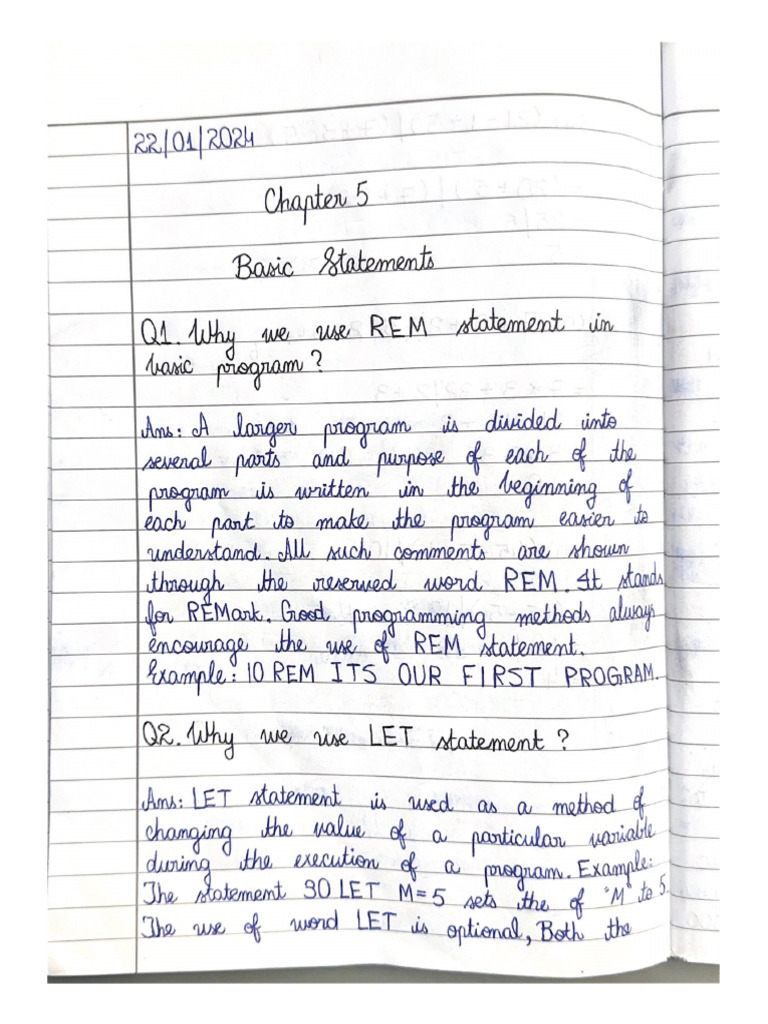 22/01/2024
Chapter 5
Basic Statements
Q1. Why we use REM statement in
basic program?
Ans: A larger program is divided into
several parts and purpose of each of the
program is written in the beginning of
each part to make the program easier to
understand. All such comments are shown
through the reserved word REM. It stands
for REMark. Good programming methods always
encourage the use of REM statement.
Example: 10 REM ITS OUR FIRST PROGRAM.
Q2. Why we use LET statement?
Ans: LET statement is used as a method of
changing the value of a particular variable
during the execution of a program. Example:
The statement 30 LET M=5 sets the of "M" to 5.
The use of word LET is optional, Both the